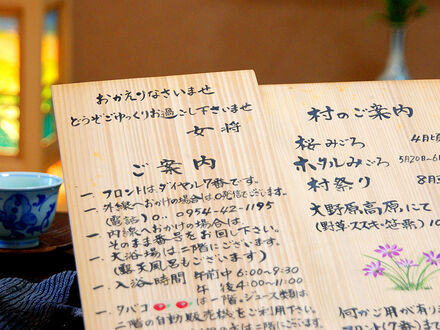 おかえりなさいませ
どうぞごゆっくりお過ごし下さいませ
女将
ご案内
一、フロントは、ダイヤル7番です。
一、外線へおかけの場合は0発信でございます。
(電話) 0. 0954-42-1195
一、内線へおかけの場合は、
そのまま番号をお回し下さい。
一、大浴場は二階にございます。
(露天風呂もございます)
一、入浴時間 午前中6:00~9:30
午後4:00~11:00
一、タバコ は一階、ジュース類は、
二階の自動販売機をご利用下さい
村のご案内
桜みごろ 4月
ホタルみごろ 5月20日~6
村祭り 8月
大野原高原にて
(野草・ススキ・笹栗) 10
何かご用が有り